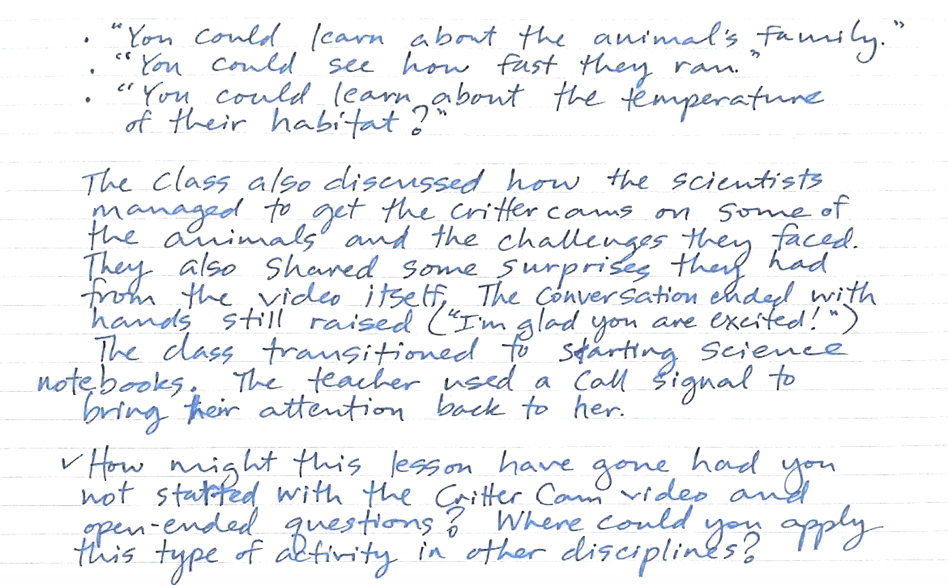 • "You could learn about the animal's family."
• "You could see how fast they ran."
• "You could learn about the temperature
of their habitat?"
The class also discussed how the scientists
managed to get the crittercams on some of
the animals and the challenges they faced.
They also shared some surprises they had
from the video itself. The conversation ended with
hands still raised ("I'm glad you are excited!")
The class transitioned to starting science
notebooks. The teacher used a call signal to
bring their attention back to her.
✓ How might this lesson have gone had you
not started with the Critter Cam video and
open-ended questions? Where could you apply
this type of activity in other disciplines?